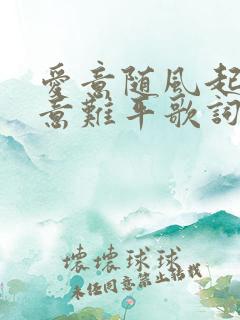 愛意随風起
意難平歌詞
壞壞球球
未经同意禁止转载